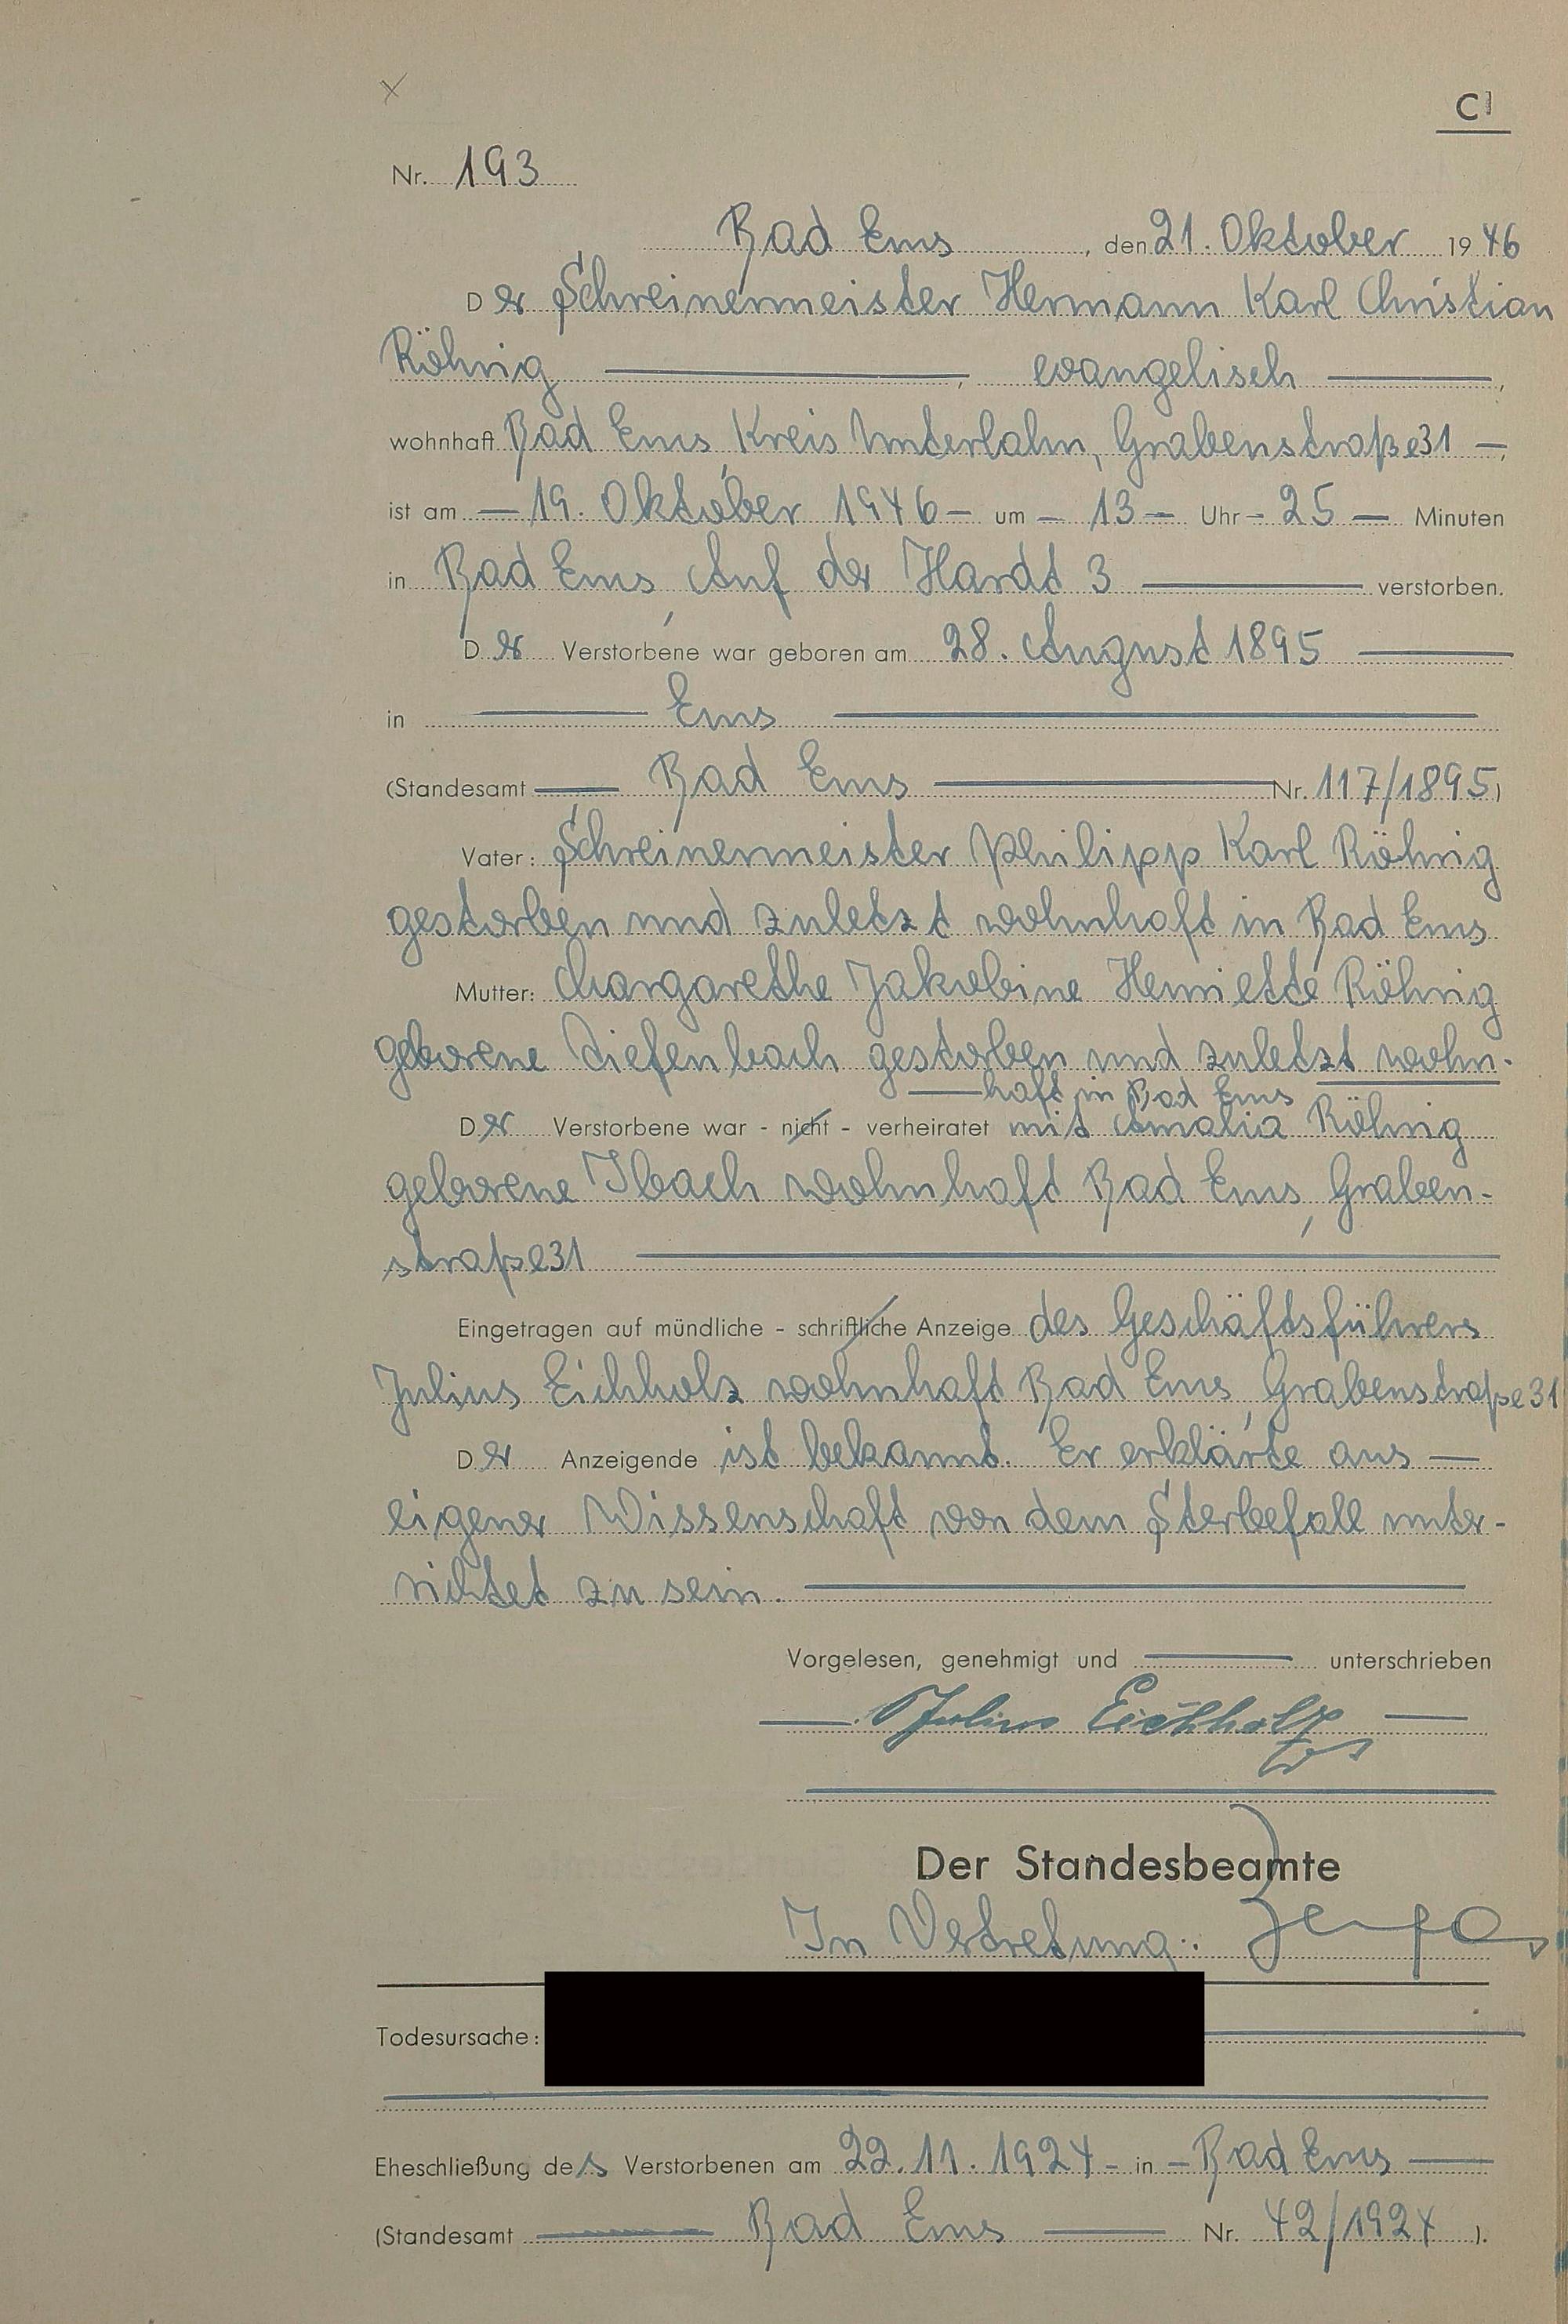 C
Nr. 193
Bad Ems, den 21. Oktober 1946
Der Schreinermeister Hermann Karl Christian
Röhrig, evangelisch,
wohnhaft Bad Ems, Kreis Unterlahn, Grabenstraße 31,
ist am 19. Oktober 1946 um 13 Uhr 25 Minuten
in Bad Ems, Auf der Hardt 3 verstorben.
Der Verstorbene war geboren am 28. August 1895
in Ems
(Standesamt Bad Ems Nr. 117/1895)
Vater: Schreinermeister Philipp Karl Röhrig
gestorben und zuletzt wohnhaft in Bad Ems
Mutter: Margarethe Jakobine Henriette Röhrig
geborene Diefenbach gestorben und zuletzt wohn-
haft in Bad Ems
Der Verstorbene war - nicht - verheiratet mit Amalia Röhrig
geborene Ibach wohnhaft Bad Ems, Graben-
straße 31
Eingetragen auf mündliche - schriftliche Anzeige des Geschäftsführers
Julius Eichholz wohnhaft Bad Ems, Grabenstraße 31
Der Anzeigende ist bekannt. Er erklärte aus
eigener Wissenschaft von dem Sterbefall unter-
richtet zu sein.
Vorgelesen, genehmigt und unterschrieben
Julius Eichholz
Der Standesbeamte
In Vertretung:
Todesursache:
Eheschließung des Verstorbenen am 22.11.1924 - in - Bad Ems
(Standesamt Bad Ems Nr. 42/1924).